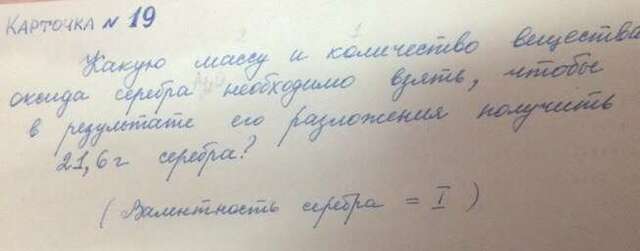 КАРТОЧКА № 19
Какую массу и количество вещества
оксида серебра необходимо взять, чтобы
в результате его разложения получить
21,6 г серебра?
(Валентность серебра = I)